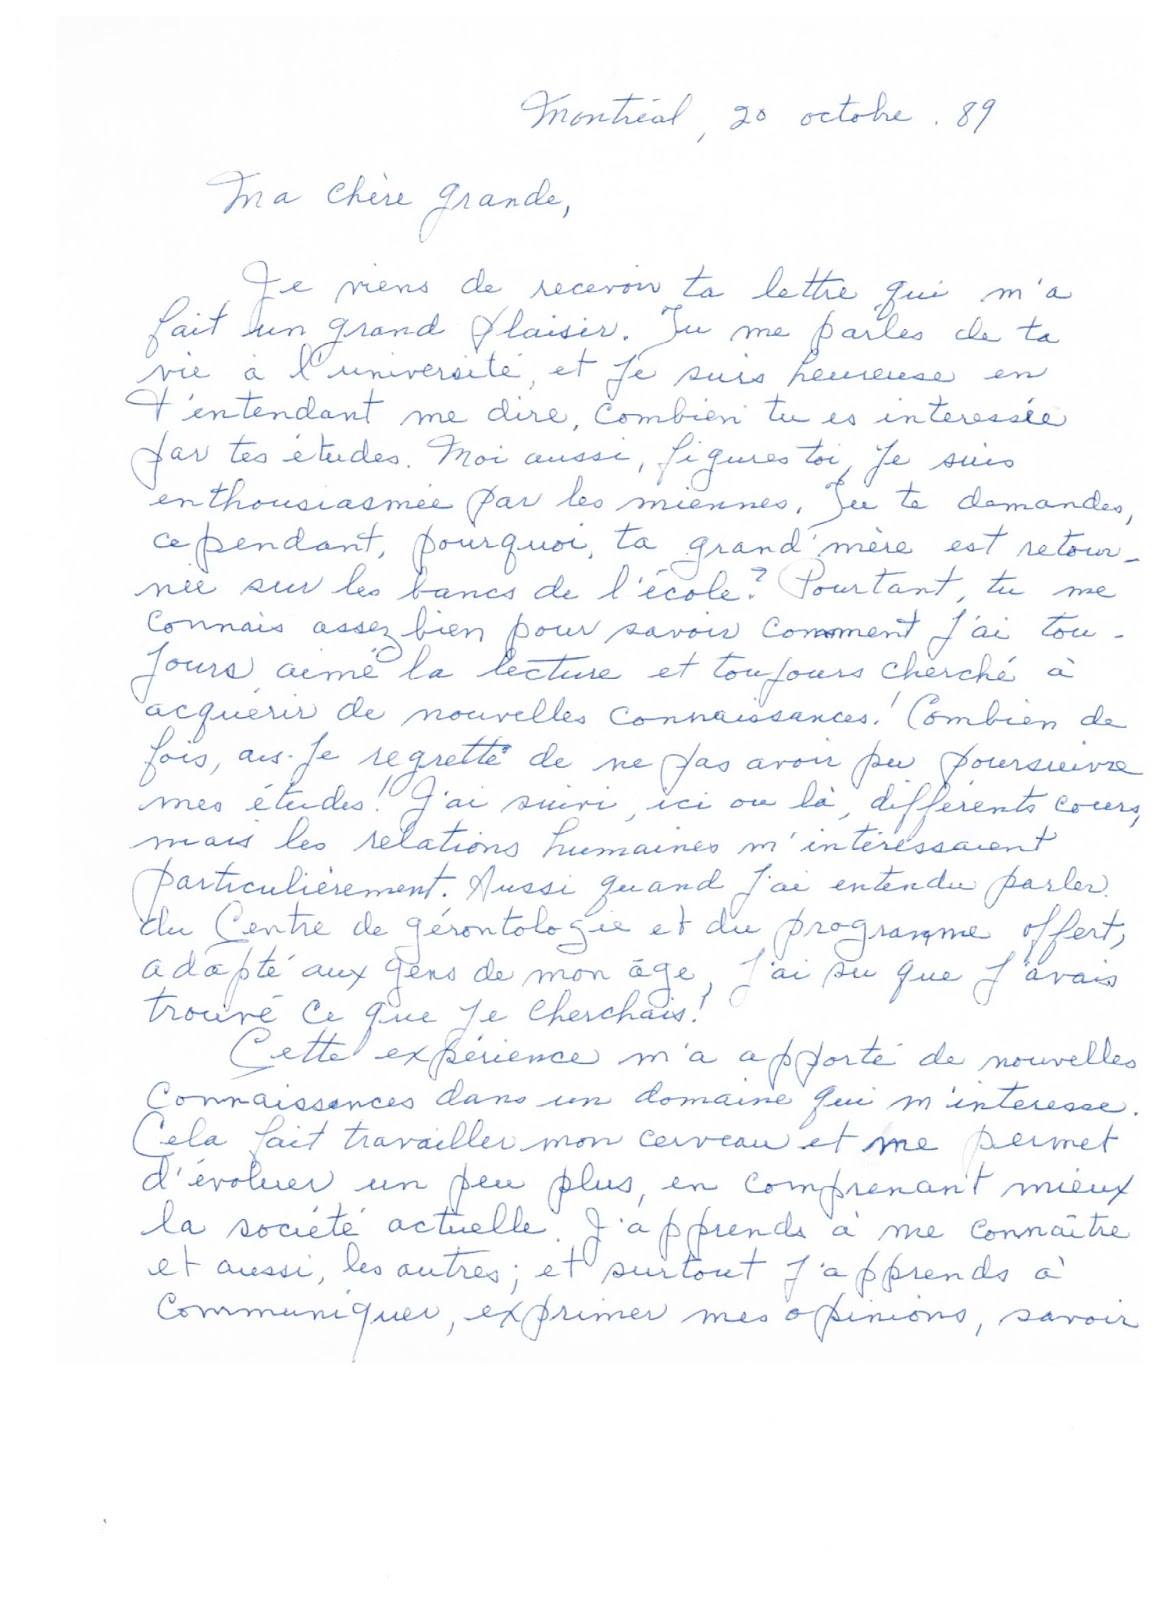 Montréal, 20 octobre . 89
Ma chère grande,
Je viens de recevoir ta lettre qui m'a
fait un grand plaisir. Tu me parles de ta
vie à l'université, et je suis heureuse en
t'entendant me dire, combien tu es interessée
par tes études. Moi aussi, figures toi, je suis
enthousiasmée par les miennes. Tu te demandes,
cependant, pourquoi, ta grand'mère est retour-
née sur les bancs de l'école? Pourtant, tu me
connais assez bien pour savoir comment j'ai tou-
jours aimé la lecture et toujours cherché à
acquérir de nouvelles connaissances! Combien de
fois, ais-je regretté de ne pas avoir pu poursuivre
mes études! J'ai suivi, ici ou là, différents cours,
mais les relations humaines m'intéressaient
particulièrement. Aussi quand j'ai entendu parler
du Centre de gérontologie et du programme offert,
adapté aux gens de mon âge, j'ai su que j'avais
trouvé ce que je cherchais!
Cette expérience m'a apporté de nouvelles
connaissances dans un domaine qui m'interesse.
Cela fait travailler mon cerveau et me permet
d'évoluer un peu plus, en comprenant mieux
la société actuelle. J'apprends à me connaître
et aussi, les autres; et surtout j'apprends à
communiquer, exprimer mes opinions, savoir